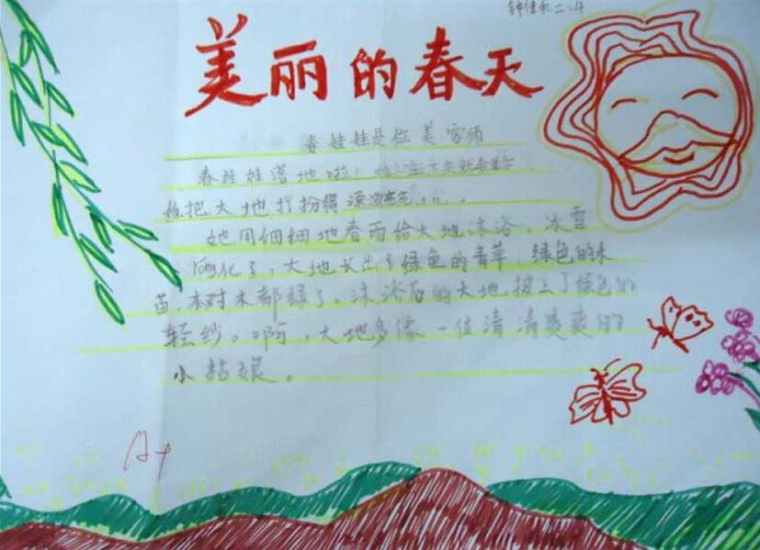 二.4
美丽的春天
春娃娃是位美容师
春娃娃落地啦！
把大地打扮得漂漂亮亮。
她用细细地春雨给大地沐浴。冰雪
融化了，大地长出了绿色的青草，绿色的禾
苗，树木都绿了。沐浴后的大地披上了绿色的
轻纱。啊，大地多像一位清清爽爽的
小姑娘。
A+